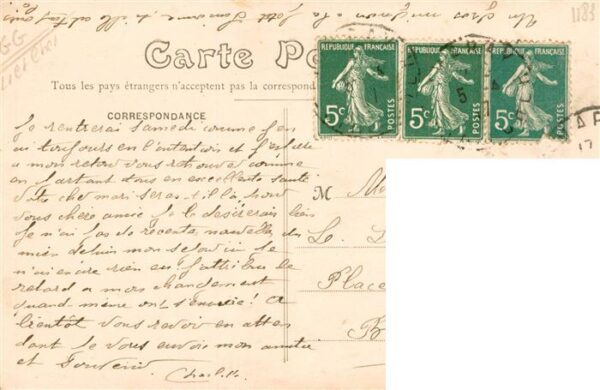 Un gros mimi à la petite Simone si elle est
1183
GG
Carte Po
Tous les pays étrangers n'acceptent pas la correspond
CORRESPONDANCE
REPUBLIQUE FRANÇAISE REPUBLIQUE FRANÇAISE REPUBLIQUE FRANÇAISE
5c POSTES 5c POSTES 5c POSTES
Je rentrerai Samedi comme j'en
ai toujours eu l'intention et j'espère
a mon retour vous retrouver comme
en partant tous en excellente santé
Votre cher mari sera-t-il là, pour
vous chère amie je le désirerais bien
Je n'ai pas de récentes nouvelles du
mien depuis mon séjour ici je
n'ai encore rien eu j'attribue le
retard a mon changement
quand même on s'ennuie! A
bientôt vous revoir en atten
dant je vous envoie mon amitié
et souvenir
M
L
Place
B
17